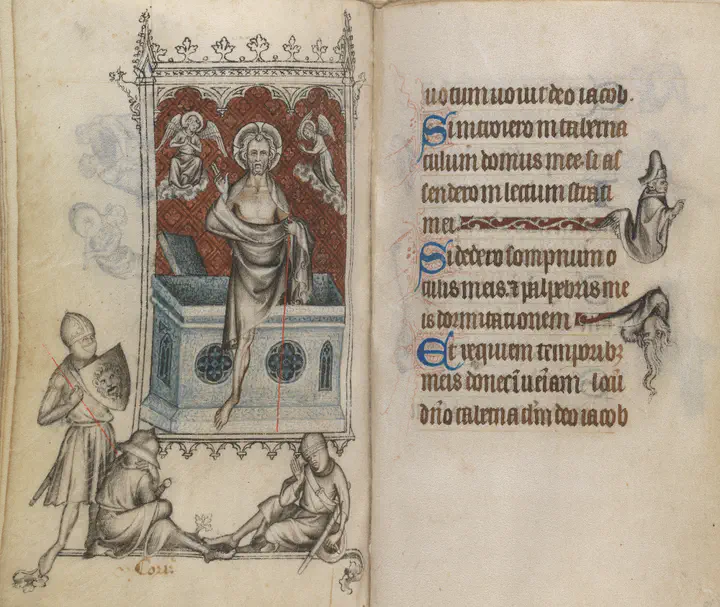 uotum uouit deo iacob.
Si introiero in taberna
culum domus mee. si as
sendero in lectum strati
mei.
Si dedero sompnum o
culis meis. et palpebris me
is dormitationem
Et requiem temporibꝫ
meis donec inueniam locū
dn̄o tabernaclm̄ deo iacob